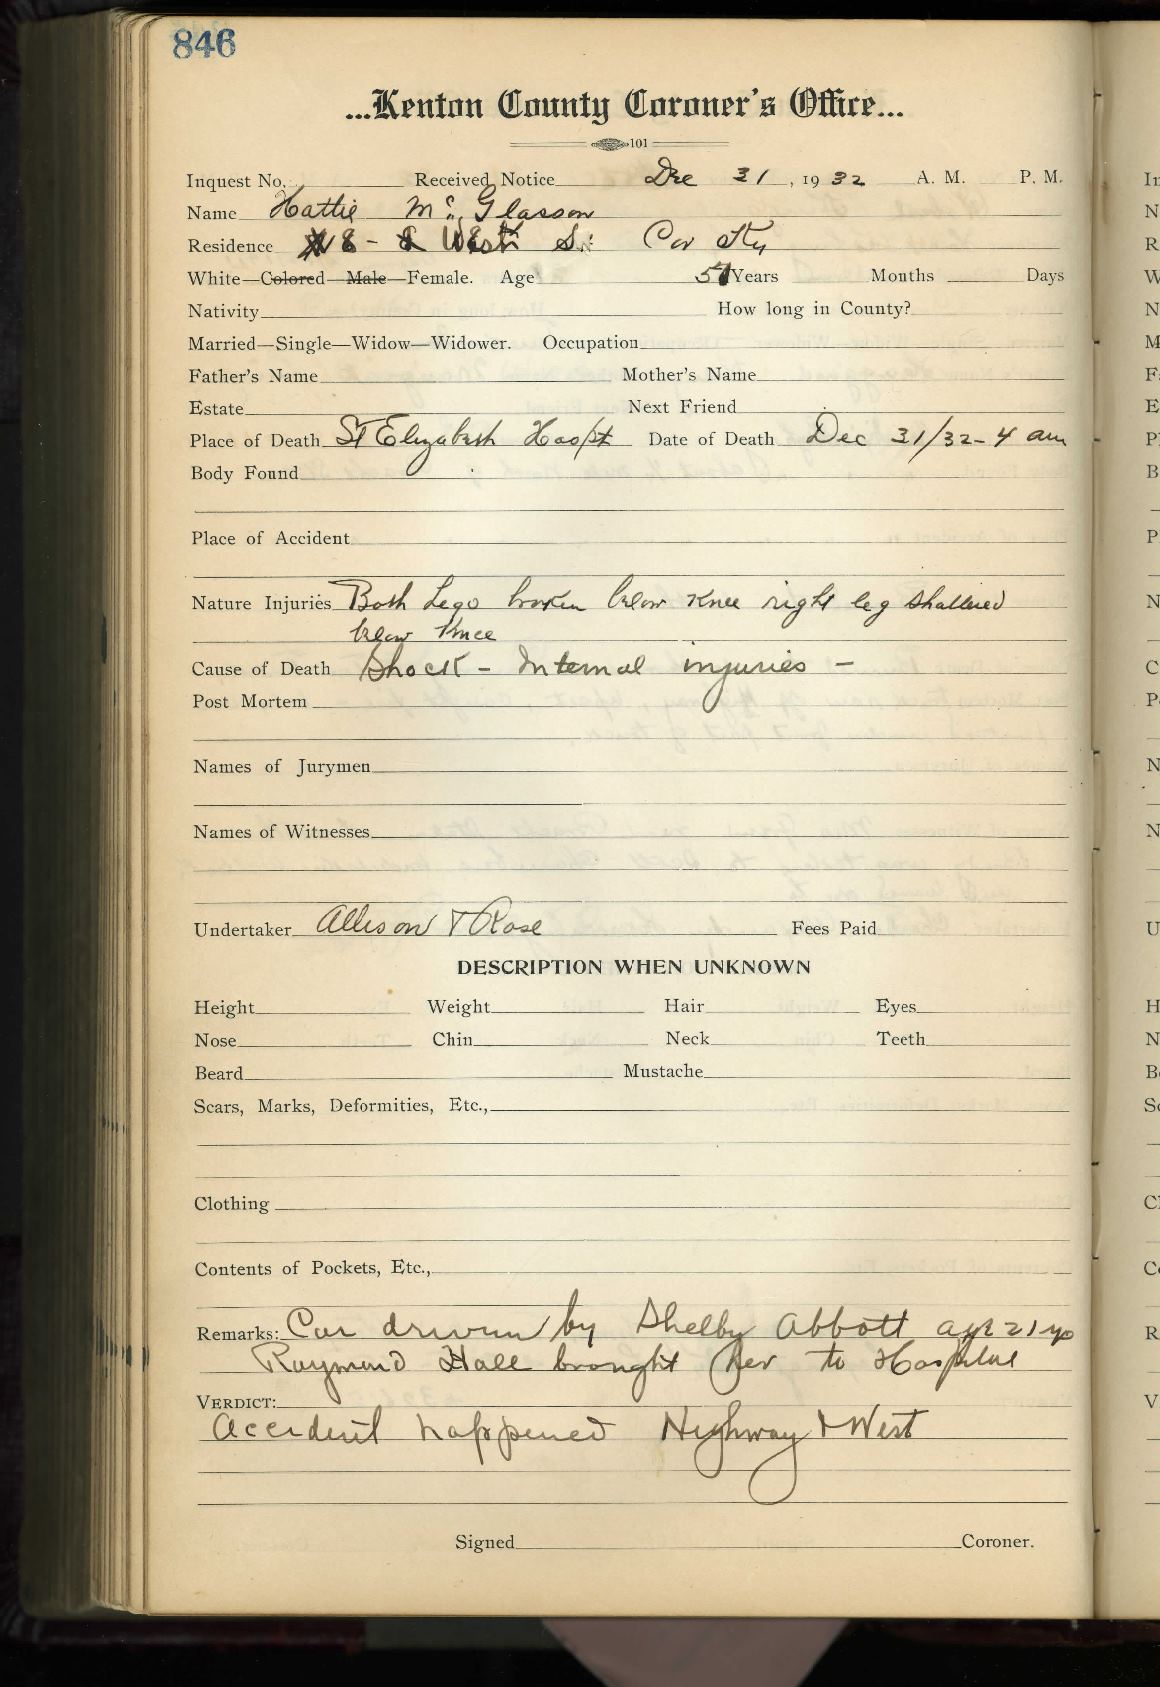 846
...Kenton County Coroner's Office...
101
Inquest No. Received Notice Dec 31, 1932 A. M. P. M.
Name Hattie Mc Glasson
Residence 8 - West St Cov Ky
White—Colored—Male—Female. Age 51 Years Months Days
Nativity How long in County?
Married—Single—Widow—Widower. Occupation
Father's Name Mother's Name
Estate Next Friend
Place of Death St Elizabeth Hospt Date of Death Dec 31/32 - 4 am
Body Found
Place of Accident
Nature Injuries Both Legs broken below Knee right leg shattered
below Knee
Cause of Death Shock - Internal injuries -
Post Mortem
Names of Jurymen
Names of Witnesses
Undertaker Allison & Rose Fees Paid
DESCRIPTION WHEN UNKNOWN
Height Weight Hair Eyes
Nose Chin Neck Teeth
Beard Mustache
Scars, Marks, Deformities, Etc.,
Clothing
Contents of Pockets, Etc.,
Remarks: Car driven by Shelby Abbott age 21 yo
Raymond Hall brought her to Hospital
VERDICT:
Accident happened Highway & West
Signed Coroner.